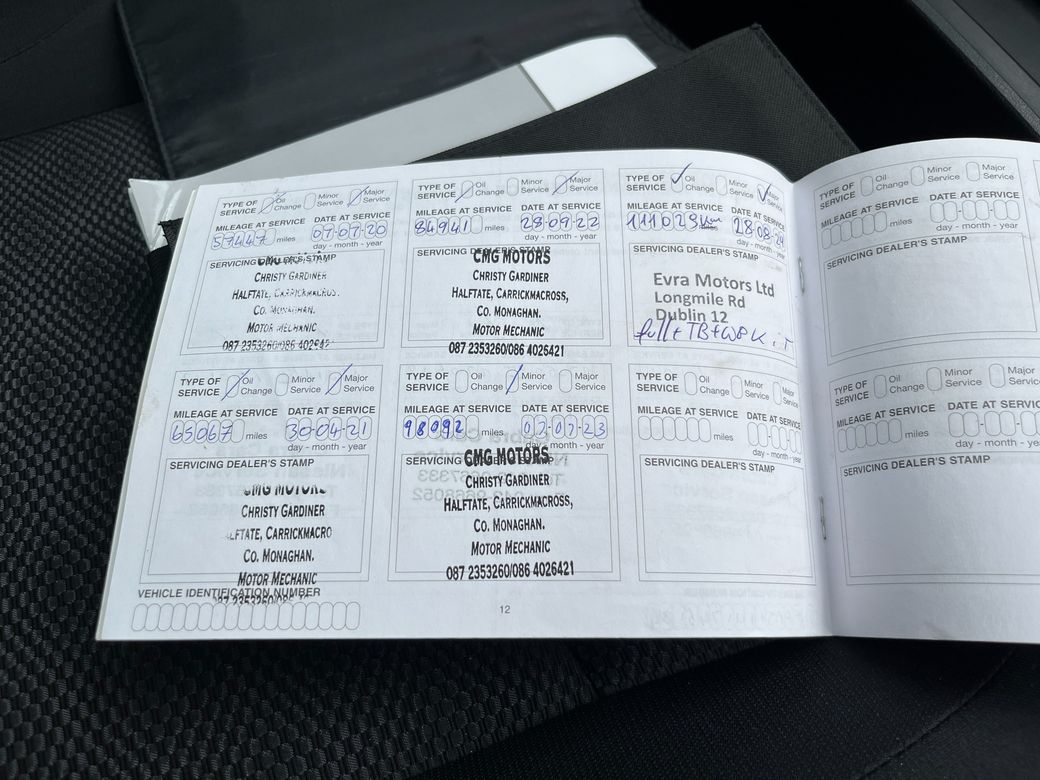 TYPE OF SERVICE Oil Change Minor Service Major Service
MILEAGE AT SERVICE DATE AT SERVICE
57447 miles 07-07-20
day - month - year
SERVICING DEALER'S STAMP
CMG MOTORS
CHRISTY GARDINER
HALFTATE, CARRICKMACROSS,
CO. MONAGHAN.
MOTOR MECHANIC
087 2353260/086 402942
TYPE OF SERVICE Oil Change Minor Service Major Service
MILEAGE AT SERVICE DATE AT SERVICE
65067 miles 30-04-21
day - month - year
SERVICING DEALER'S STAMP
CMG MOTORS
CHRISTY GARDINER
LFTATE, CARRICKMACRO
CO. MONAGHAN.
MOTOR MECHANIC
087 2353260/086
VEHICLE IDENTIFICATION NUMBER
TYPE OF SERVICE Oil Change Minor Service Major Service
MILEAGE AT SERVICE DATE AT SERVICE
84941 miles 28-09-22
day - month - year
SERVICING DEALER'S STAMP
CMG MOTORS
CHRISTY GARDINER
HALFTATE, CARRICKMACROSS,
CO. MONAGHAN.
MOTOR MECHANIC
087 2353260/086 4026421
TYPE OF SERVICE Oil Change Minor Service Major Service
MILEAGE AT SERVICE DATE AT SERVICE
98092 miles 07-07-23
day - month - year
SERVICING DEALER'S STAMP
CMG MOTORS
CHRISTY GARDINER
HALFTATE, CARRICKMACROSS,
CO. MONAGHAN.
MOTOR MECHANIC
087 2353260/086 4026421
12
TYPE OF SERVICE Oil Change Minor Service Major Service
MILEAGE AT SERVICE DATE AT SERVICE
111023 km 28-08-24
day - month - year
SERVICING DEALER'S STAMP
Evra Motors Ltd
Longmile Rd
Dublin 12
full + TB + W P K i T
TYPE OF SERVICE Oil Change Minor Service Major Service
MILEAGE AT SERVICE DATE AT SERVICE
miles
day - month - year
SERVICING DEALER'S STAMP
TYPE OF SERVICE Oil Change Minor Service Major Service
MILEAGE AT SERVICE DATE AT SERVICE
miles
day - month - year
SERVICING DEALER'S STAMP
TYPE OF SERVICE Oil Change Minor Service Major Service
MILEAGE AT SERVICE DATE AT SERVICE
miles
day - month - year
SERVICING DEALER'S STAMP